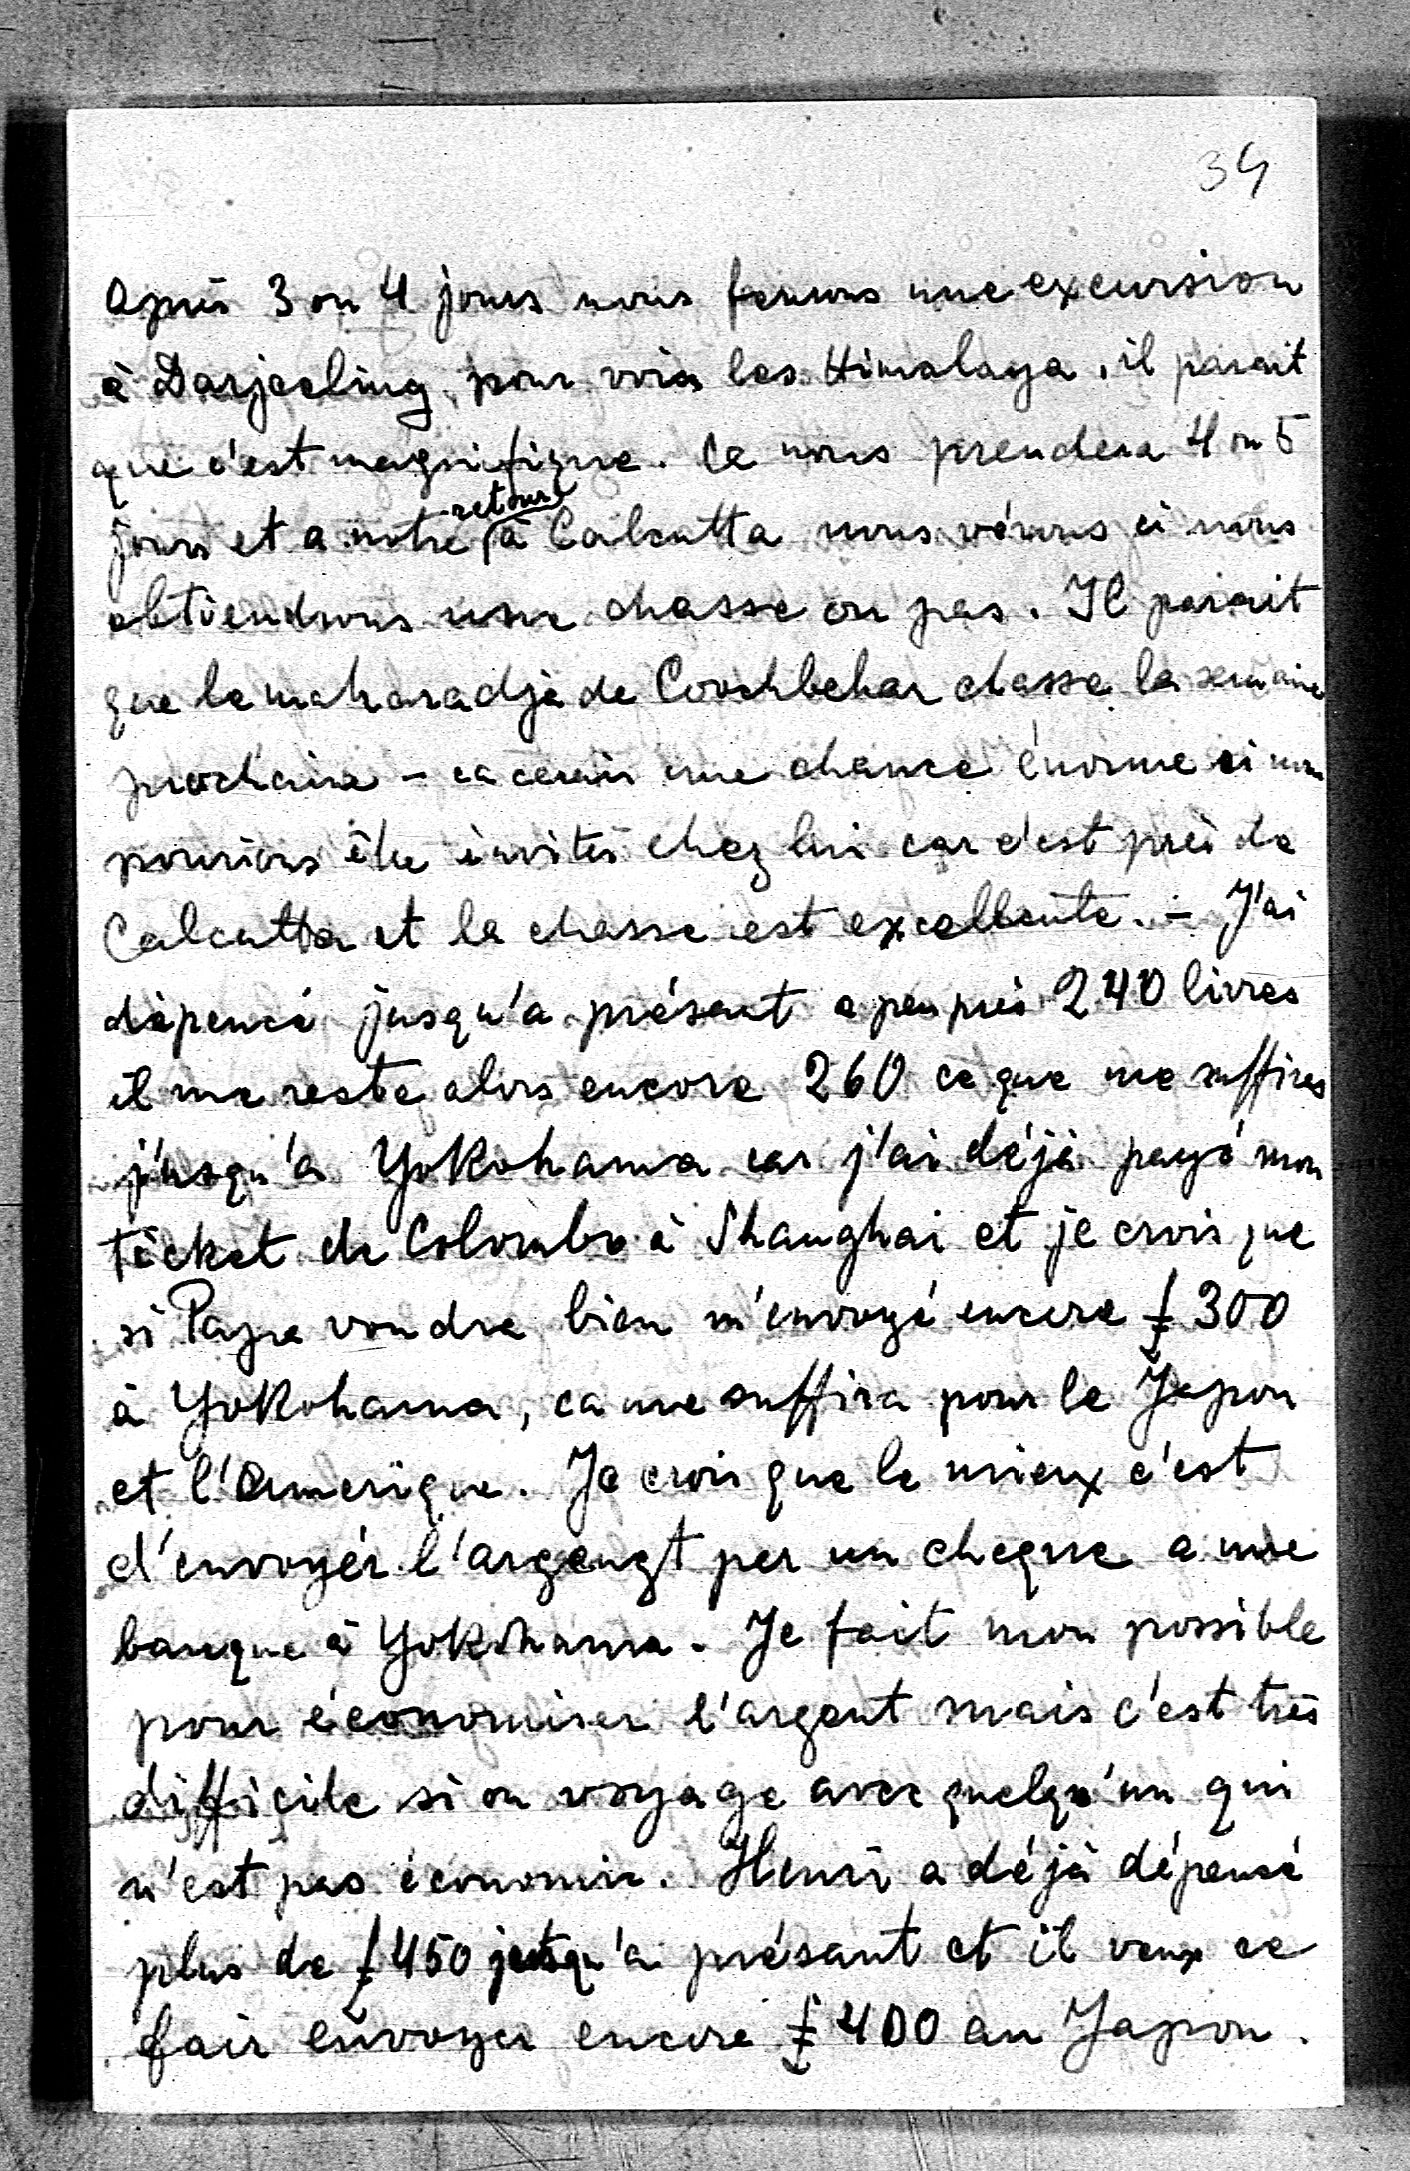 34
après 3 ou 4 jours nous ferons une excursion
à Darjeeling pour voir les Himalaya, il parait
que c'est magnifique. Ce nous prendera 4 ou 5
jours et a notre retour à Calcutta nous vérons si nous
obtiendrons une chasse ou pas. Il parait
que le maharadja de Coochbehar chasse la semaine
prochaine – ca cerais une chance énorme si nous
pourions être invités chez lui car c'est près de
Calcutta et la chasse est excellente. – J'ai
dépencé jusqu'a présent a peu près 240 livres
il me reste alors encore 260 ce que me suffires
j'usqu'a Yokohama car j'ai déjà payé mon
ticket de Colombo à Shanghai et je crois que
si Papa voudra bien m'envoyé encore £ 300
à Yokohama, ca me suffira pour le Japon
et l'Amerique. Je crois que le mieux c'est
d'envoyér l'argengt par un cheque a une
banque à Yokohama. Je fait mon possible
pour économiser l'argent mais c'est très
difficile si on voyage avec quelqu'un qui
n'est pas économic. Henri a déjà dépensé
plus de £ 450 jusqu'a présant et il veux ce
fair envoyer encore £ 400 au Japon.